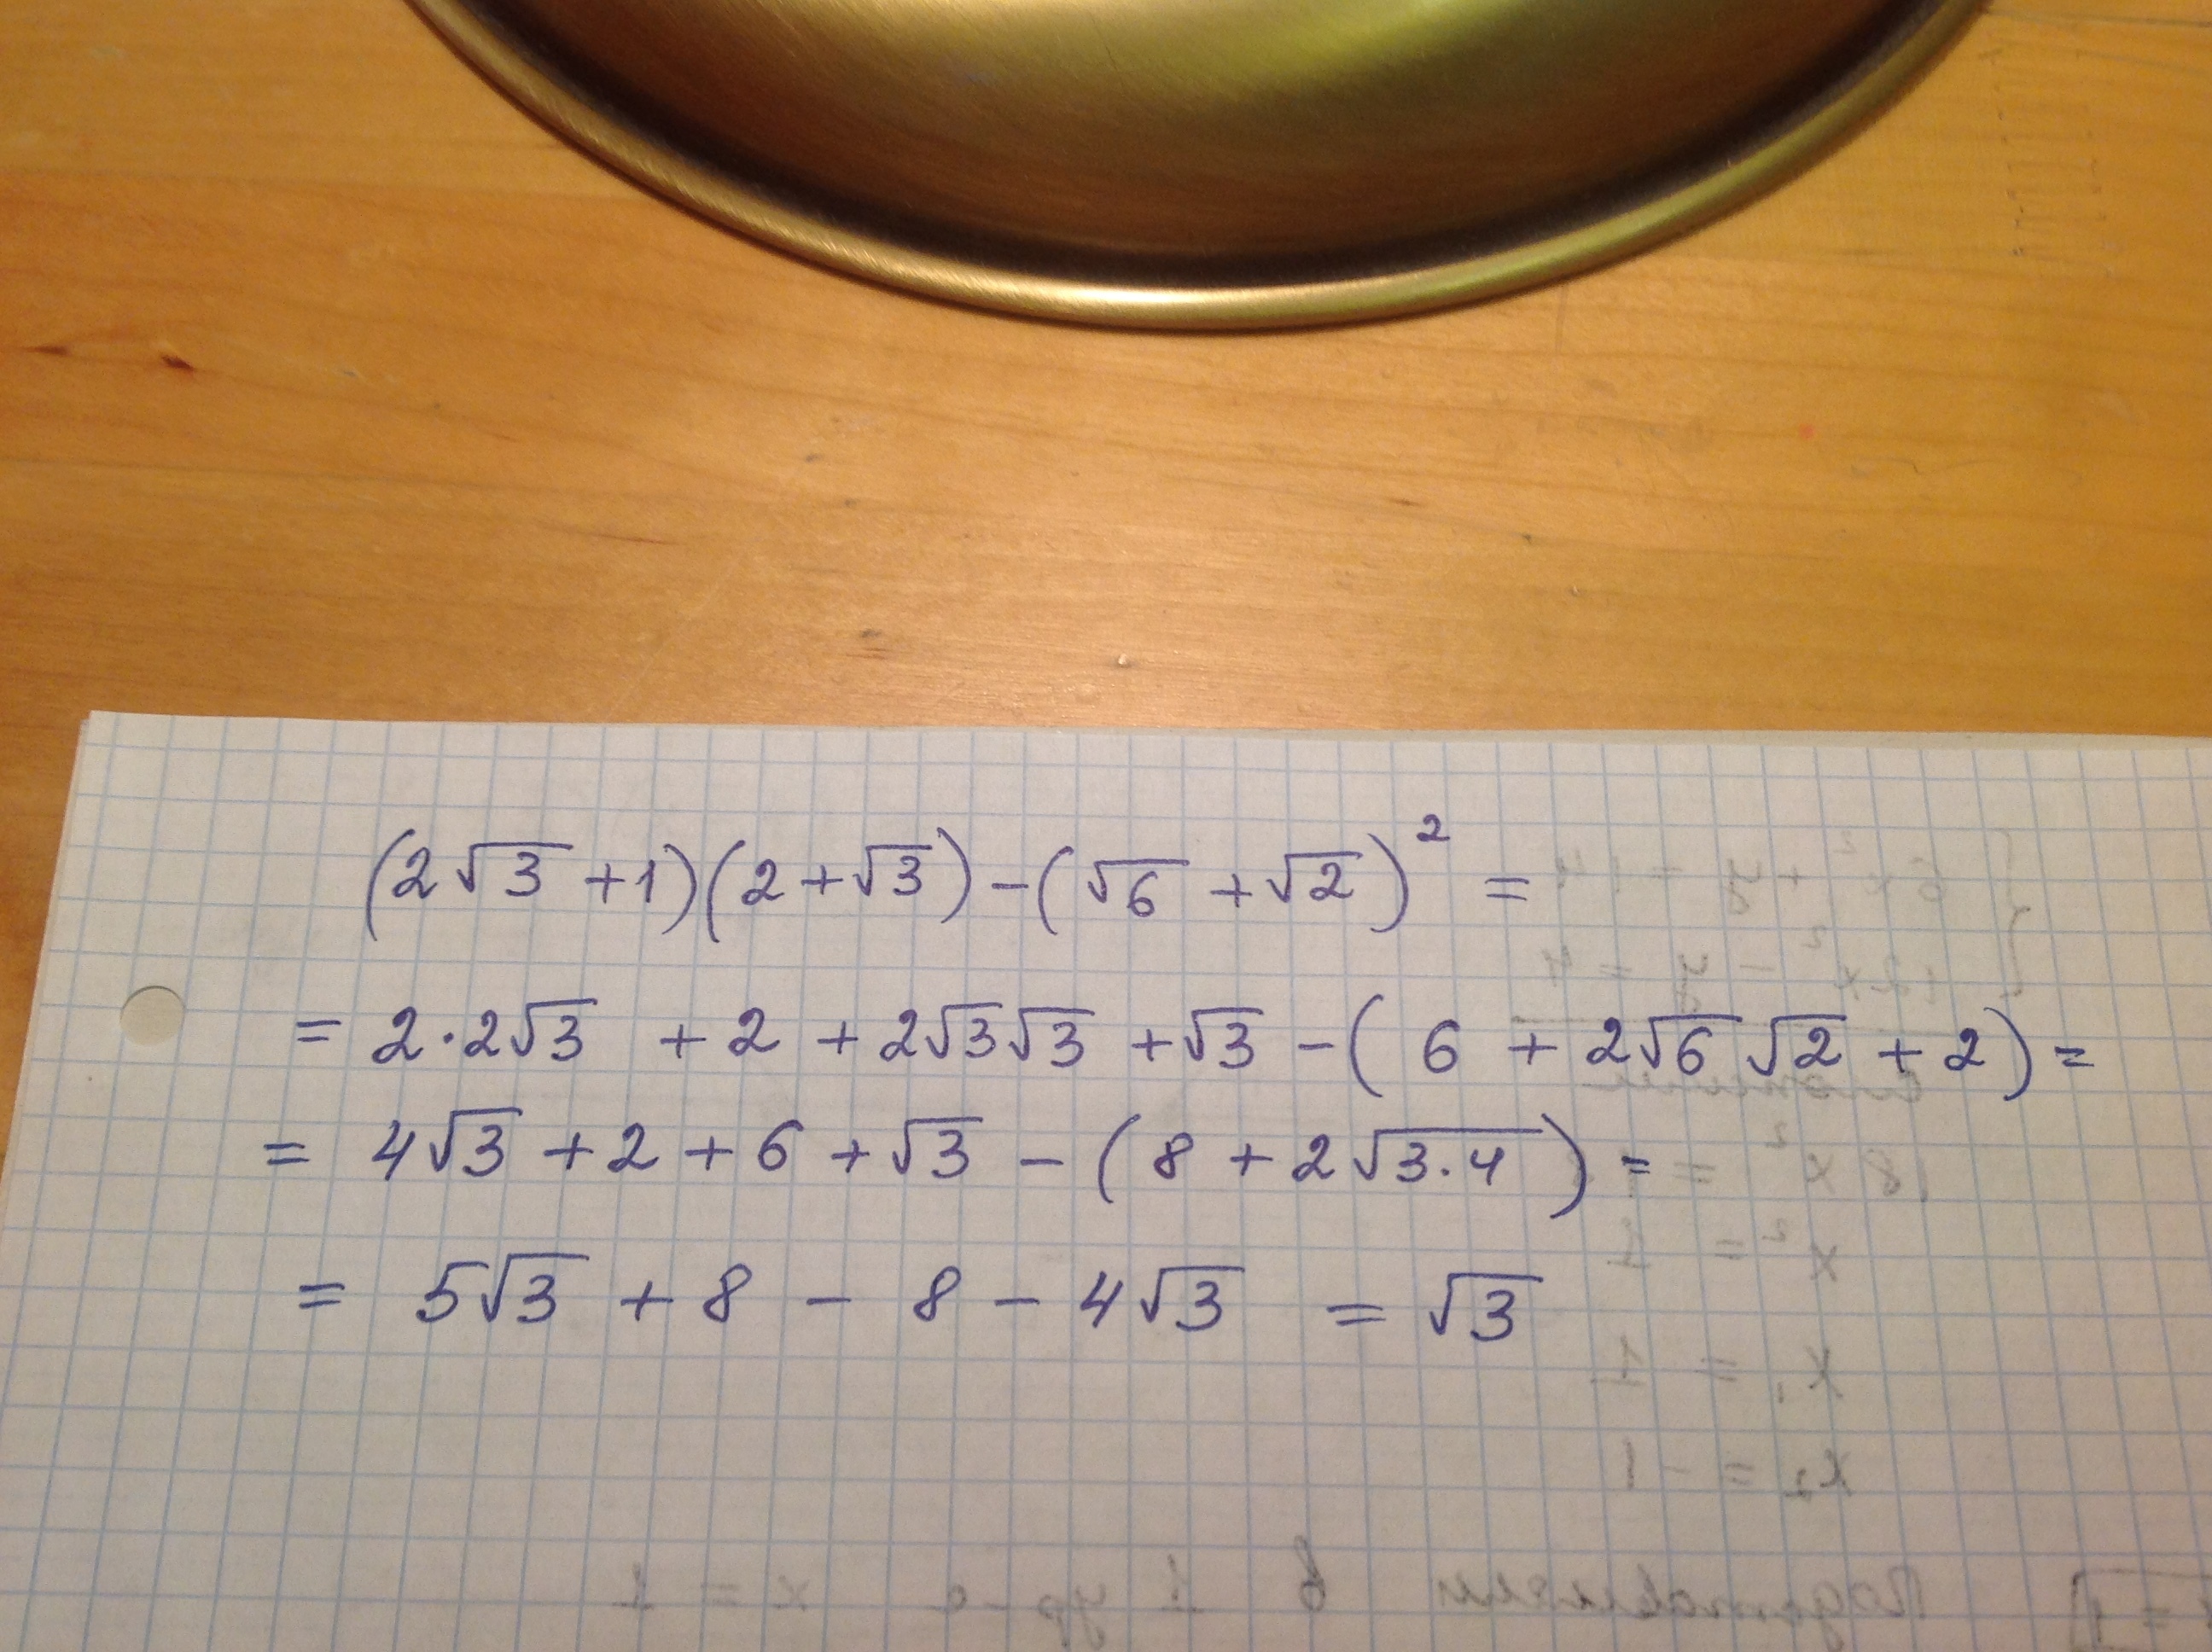 (2√3 + 1)(2 + √3) − (√6 + √2)² =
= 2·2√3 + 2 + 2√3√3 + √3 − (6 + 2√6√2 + 2) =
= 4√3 + 2 + 6 + √3 − (8 + 2√3·4) =
= 5√3 + 8 − 8 − 4√3 = √3